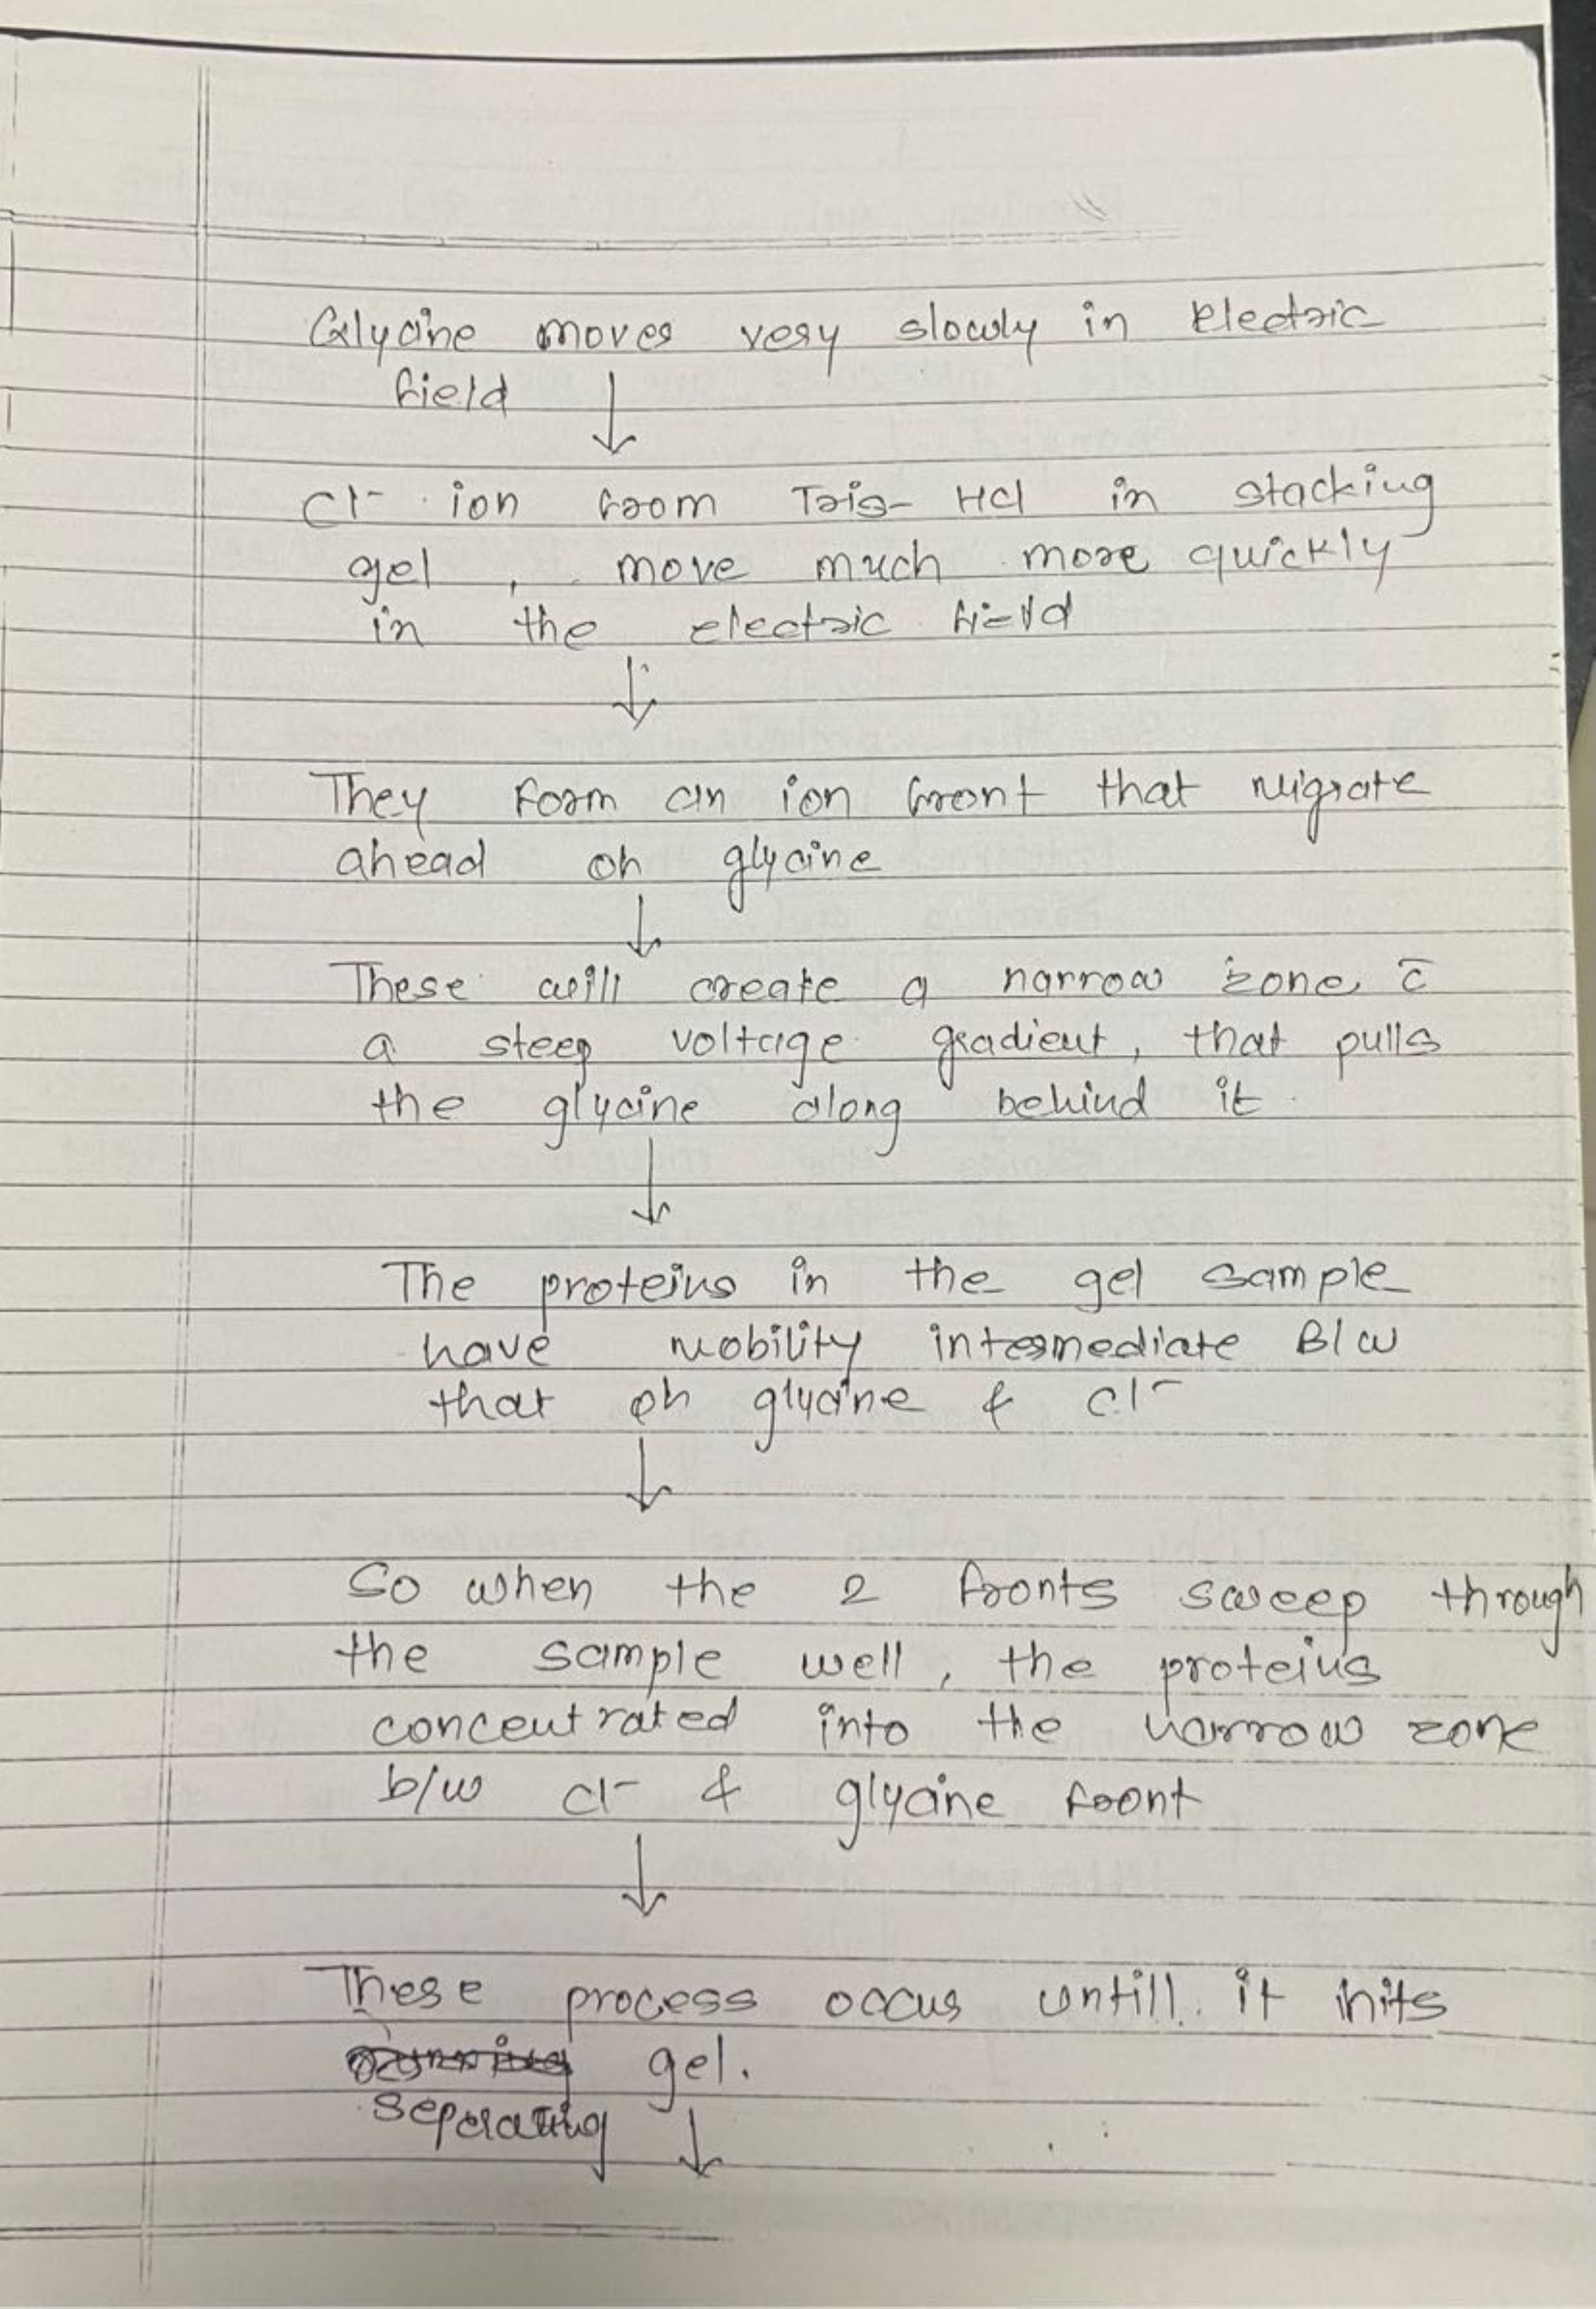 Glycine moves very slowly in electric
field
↓
Cl⁻ ion from Tris- HCl in stacking
gel , move much more quickly
in the electric field
↓
They form an ion front that migrate
ahead of glycine
↓
These will create a narrow zone c̄
a steep voltage gradient, that pulls
the glycine along behind it.
↓
The proteins in the gel sample
have mobility intermediate B/w
that of glycine & Cl⁻
↓
So when the 2 fronts sweep through
the sample well, the proteins
concentrated into the narrow zone
b/w Cl⁻ & glycine front
↓
These process occus untill it hits
running gel.
seperating ↓